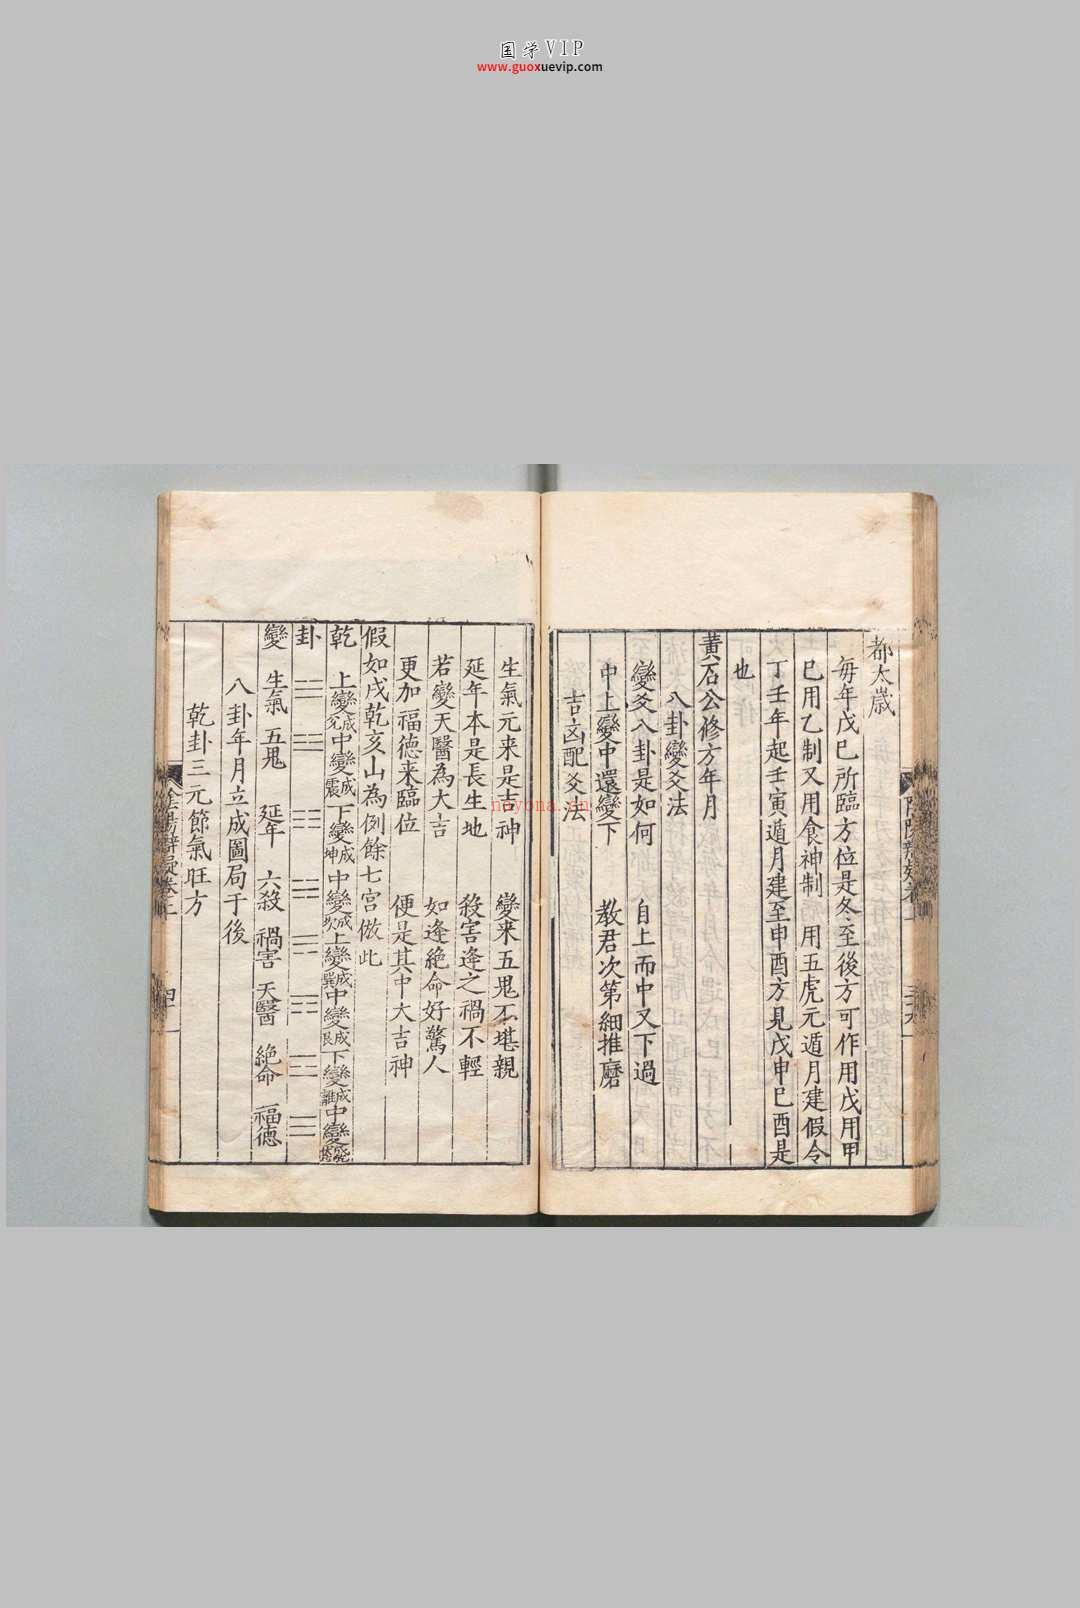 国学VIP
www.guoxuevip.com
都太歲
每年戊巳所臨方位是冬至後方可作用戊用甲
巳用乙制又用食神制 用五虎元遁月建假令
丁壬年起壬寅遁月建至申酉方見戊申巳酉是
也
黃石公修方年月
八卦變爻法
變爻入卦是如何 自上而中又下過
中上變中還變下 教君次第細推磨
吉凶配爻法
生氣元来是吉神 變来五鬼不堪親
延年本是長生地 殺害逢之禍不輕
若變天醫為大吉 如逢絶命好驚人
更加福德来臨位 便是其中大吉神
假如戌乾亥山為例餘七宮倣此
乾 上變成兌中變成震下變成坤中變成坎上變成巽中變成艮下變成離中變成乾
卦 ☰ ☱ ☳ ☷ ☵ ☴ ☶ ☲
變 生氣 五鬼 延年 六殺 禍害 天醫 絶命 福德
八卦年月立成圖局于後
乾卦三元節氣旺方
陰陽辯疑卷三
四十
nayona.cn